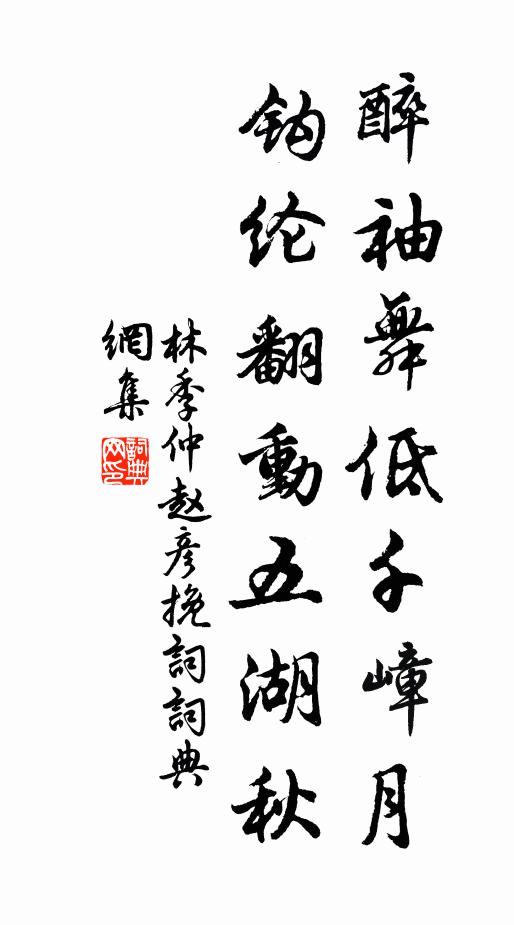 醉袖舞低千嶂月
钩纶翻動五湖秋
林季仲赵彦挽詞詞典
網集
詞典
网印